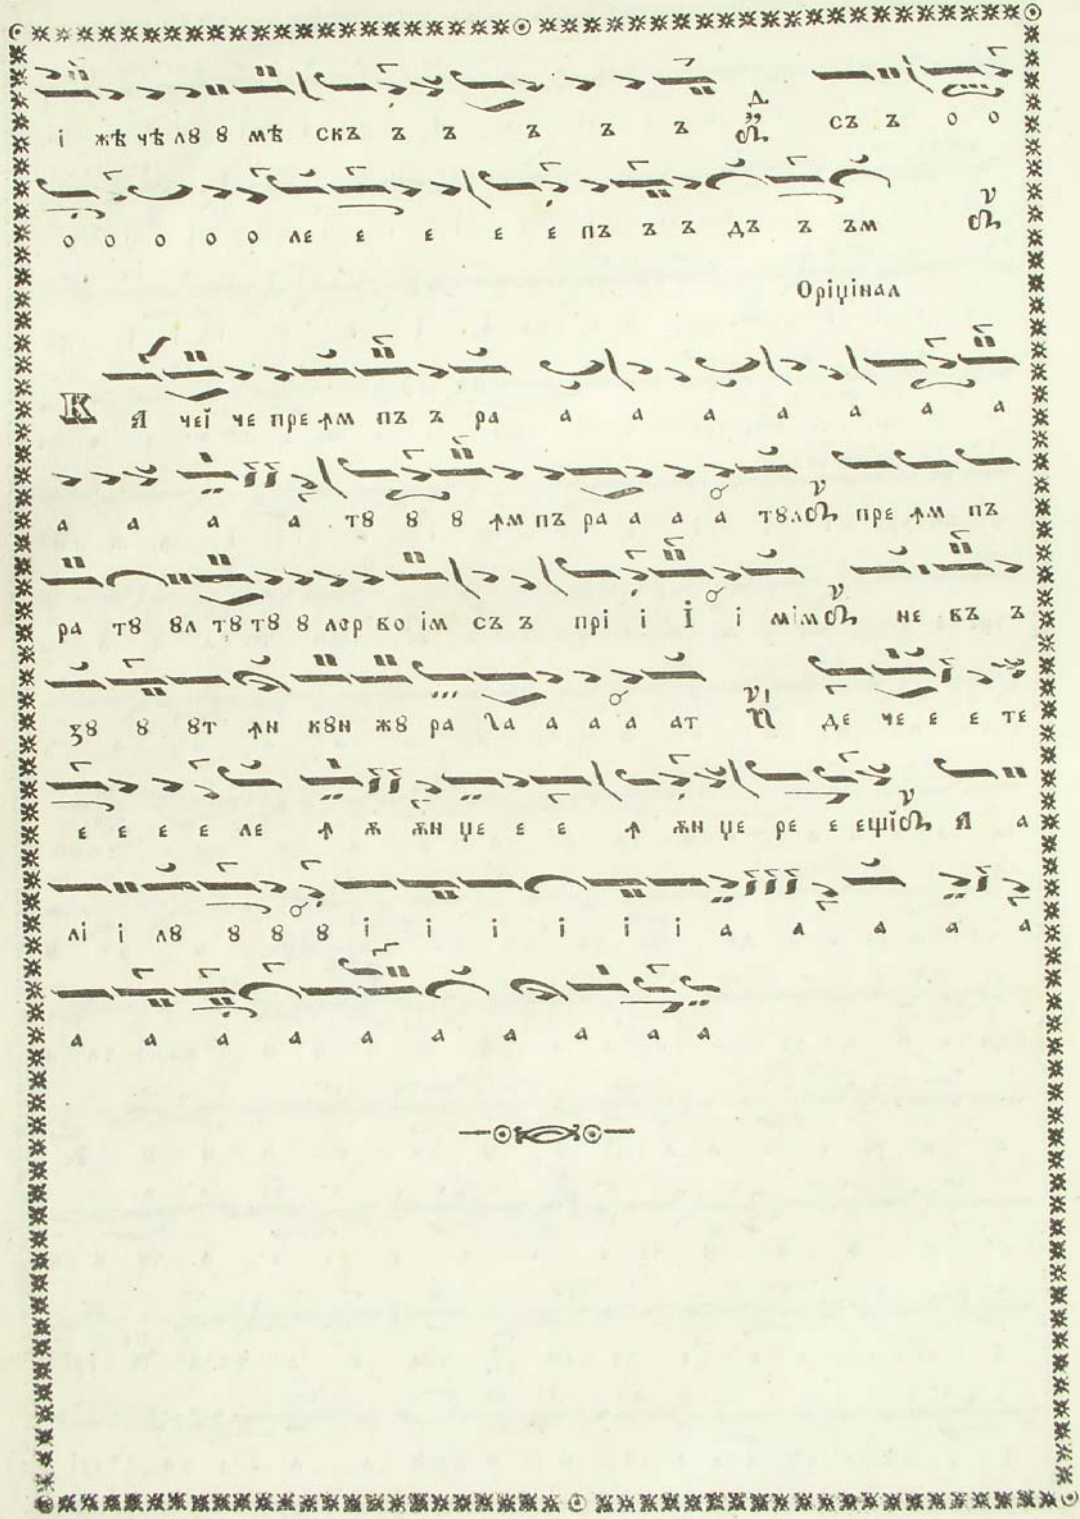 і жѣ чѣ лꙋ ꙋ мѣ скъ ъ ъ ъ ъ ъ съ ъ о о
о о о о о ле е е е е пъ ъ ъ дъ ъ ъм
Оріџінал
К А чеї че пре ꙟм пъ ъ ра а а а а а а а
а а а а тꙋ ꙋ ꙋ ꙟм пъ ра а а а тꙋл пре ꙟм пъ
ра тꙋ ꙋл тꙋ тꙋ ꙋ лор во ім съ ъ прі і І і мім не въ ъ
зꙋ ꙋ ꙋт ꙟн кꙋн жꙋ ра ла а а а ат де че е е те
е е е е ле ꙟ ѫ ѫн џе е е ꙟ ѫн џе ре е ещї А а
лі і лꙋ ꙋ ꙋ ꙋ і і і і і і а а а а а
а а а а а а а а а а